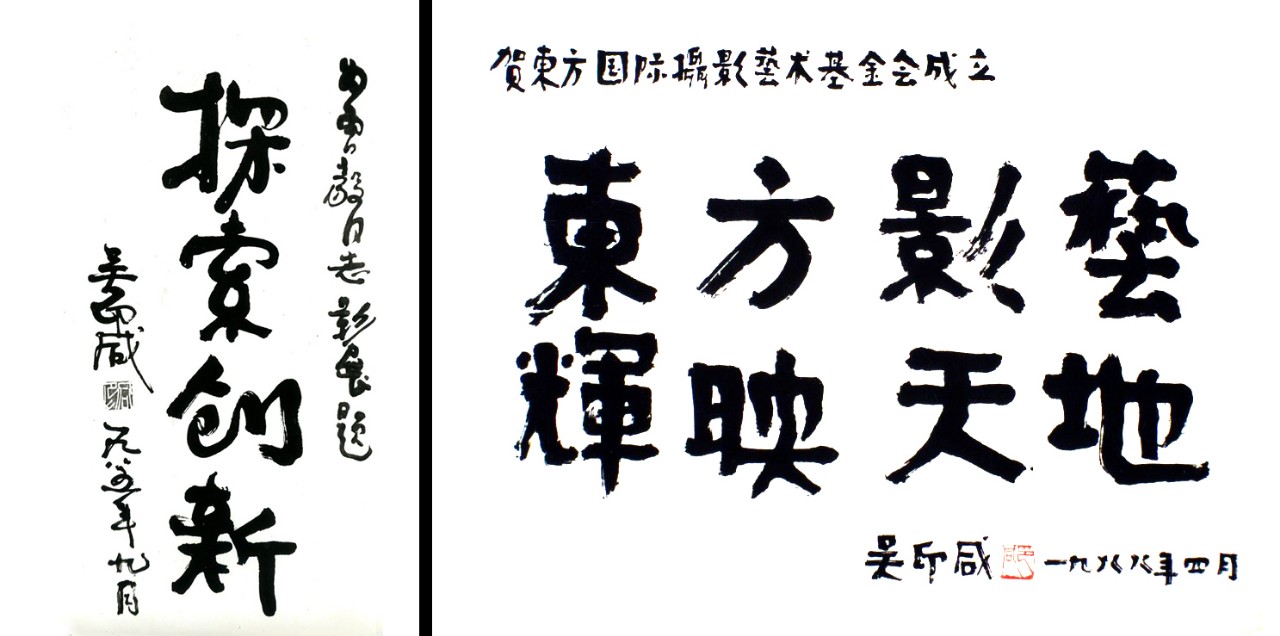 同志影展题
探索创新
吴印咸 一九八五年九月
賀東方国际攝影藝术基金会成立
東方影藝
輝映天地
吴印咸 一九八八年四月